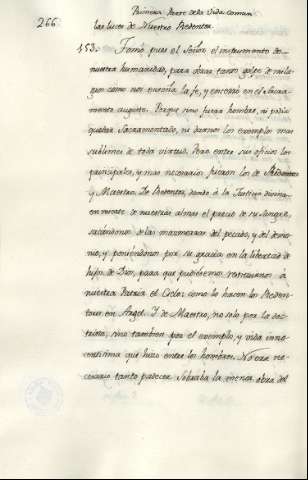 266. Primera Parte de la Vida comun
las luces de Nuestro Redentor.
153. Tomó pues el Señor el instrumento de
nuestra humanidad, para obrar tanto golpe de mila-
gros como nos enseña la fe, y encerró en el Sacra-
mento augusto. Porque sino fuera hombre, ni podia
quedar Sacramentado, ni darnos los exemplos mas
sublimes de toda virtud. Pero entre sus oficios los
principales, y mas necesarios, fueron los de Redentor
y Maestro. De Redentor, dando á la Justicia divina
en rescate de nuestras almas el precio de su Sangre,
sacándonos de las mazmorras del pecado, y del demo-
nio, y poniéndonos por su gracia en la libertad de
hijos de Dios, para que pudiesemos restituirnos á
nuestra Patria el Cielo: como lo hacen los Reden-
tores en Argel. Y de Maestro, no solo por la doc-
trina, sino tambien por el exemplo, y vida inno-
centisima que hizo entre los hombres. No era ne-
cesario tanto padecer. Sobraba la menor obra del